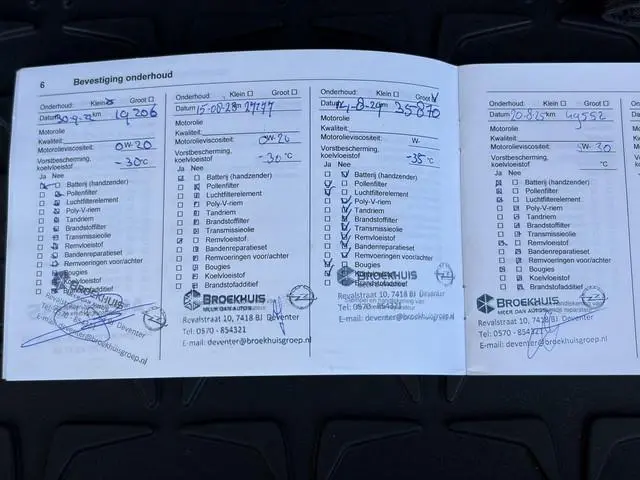 6 Bevestiging onderhoud
Onderhoud: Klein Groot
Datum 30-9- km 19206
Motorolie
Kwaliteit:
Motorolieviscositeit: 0W-20
Vorstbescherming, koelvloeistof -30 °C
Ja Nee
Batterij (handzender)
Pollenfilter
Luchtfilterelement
Poly-V-riem
Tandriem
Brandstoffilter
Transmissieolie
Remvloeistof
Bandenreparatieset
Remvoeringen voor/achter
Bougies
Koelvloeistof
Deventer
E-mail: deventer@broekhuisgroep.nl
Onderhoud: Klein Groot
Datum 15-08-23 km 27177
Motorolie
Kwaliteit:
Motorolieviscositeit: 0W-20
Vorstbescherming, koelvloeistof -30 °C
Ja Nee
Batterij (handzender)
Pollenfilter
Luchtfilterelement
Poly-V-riem
Tandriem
Brandstoffilter
Transmissieolie
Remvloeistof
Bandenreparatieset
Remvoeringen voor/achter
Bougies
Koelvloeistof
Brandstofadditief
BROEKHUIS
MEER DAN AUTO'S
Revalstraat 10, 7418 BJ Deventer
Tel: 0570 - 854321
E-mail: deventer@broekhuisgroep.nl
Onderhoud: Klein Groot
Datum 14-8-24 km 35870
Motorolie
Kwaliteit:
Motorolieviscositeit: W-
Vorstbescherming, koelvloeistof -35 °C
Ja Nee
Batterij (handzender)
Pollenfilter
Luchtfilterelement
Poly-V-riem
Tandriem
Brandstoffilter
Transmissieolie
Remvloeistof
Bandenreparatieset
Remvoeringen voor/achter
Bougies
Koelvloeistof
Brandstofadditief
BROEKHUIS
Revalstraat 10, 7418 BJ Deventer
Tel: 0570 - 854321
E-mail: deventer@broekhuisgroep.nl
Onderhoud: Klein Groot
Datum 20-8-25 km 49552
Motorolie
Kwaliteit:
Motorolieviscositeit: W-30
Vorstbescherming, koelvloeistof °C
Ja Nee
Batterij (handzender)
Pollenfilter
Luchtfilterelement
Poly-V-riem
Tandriem
Brandstoffilter
Transmissieolie
Remvloeistof
Bandenreparatieset
Remvoeringen voor/achter
Bougies
Koelvloeistof
Brandstofadditief
BROEKHUIS
MEER DAN AUTO'S
Revalstraat 10, 7418 BJ Deventer
Tel: 0570 - 854321
E-mail: deventer@broekhuisgroep.nl